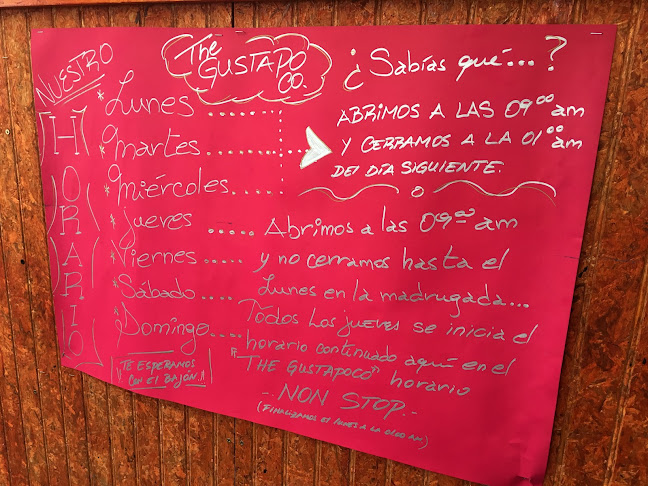 NUESTRO
HORARIO
The
GUSTAPO
CO.
¿Sabías qué...?
*Lunes
*Martes
*Miércoles
ABRIMOS A LAS 09⁰⁰ am
Y CERRAMOS A LA 01⁰⁰ am
DEl DÍA SIGUIENTE.
*Jueves
*Viernes
*Sábado
*Domingo
Abrimos a las 09⁰⁰ am
y no cerramos hasta el
Lunes en la madrugada...
Todos los jueves se inicia el
horario continuado aquí en el
"THE GUSTAPOCO" horario
-NON STOP.-
(FINALIZAMOS El lunes A la 01:00 AM)
¡TE ESPERAMOS
CON El BAJÓN!